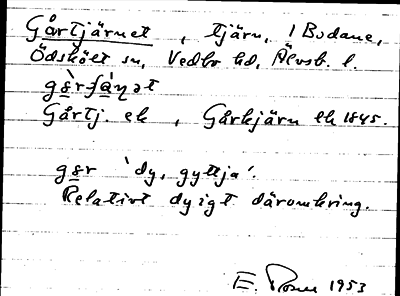 Gårtjärnet, tjärn, I Bodane,
Ödskölt sn, Vedbo hd, Älvsb. l.
Gårtj. ek, Gårkjärn lk 1845.
gɛr 'dy, gyttja'.
Relativt dyigt däromkring.
E. 1953